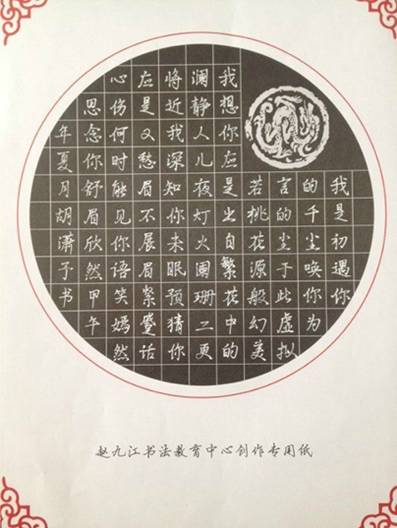 我是初遇你
的千尘唤你为
言的尘于此虚拟
若桃花源般幻美
我想你应是之自繁花中的
澜静人儿夜灯火阑珊二更
将近我深知你未眠预猜你
应是又愁眉不展眉紧蹙话
心伤何时能见你语笑嫣然
思念你舒眉欣然甲午
年夏月胡潇予书
赵九江书法教育中心创作专用纸